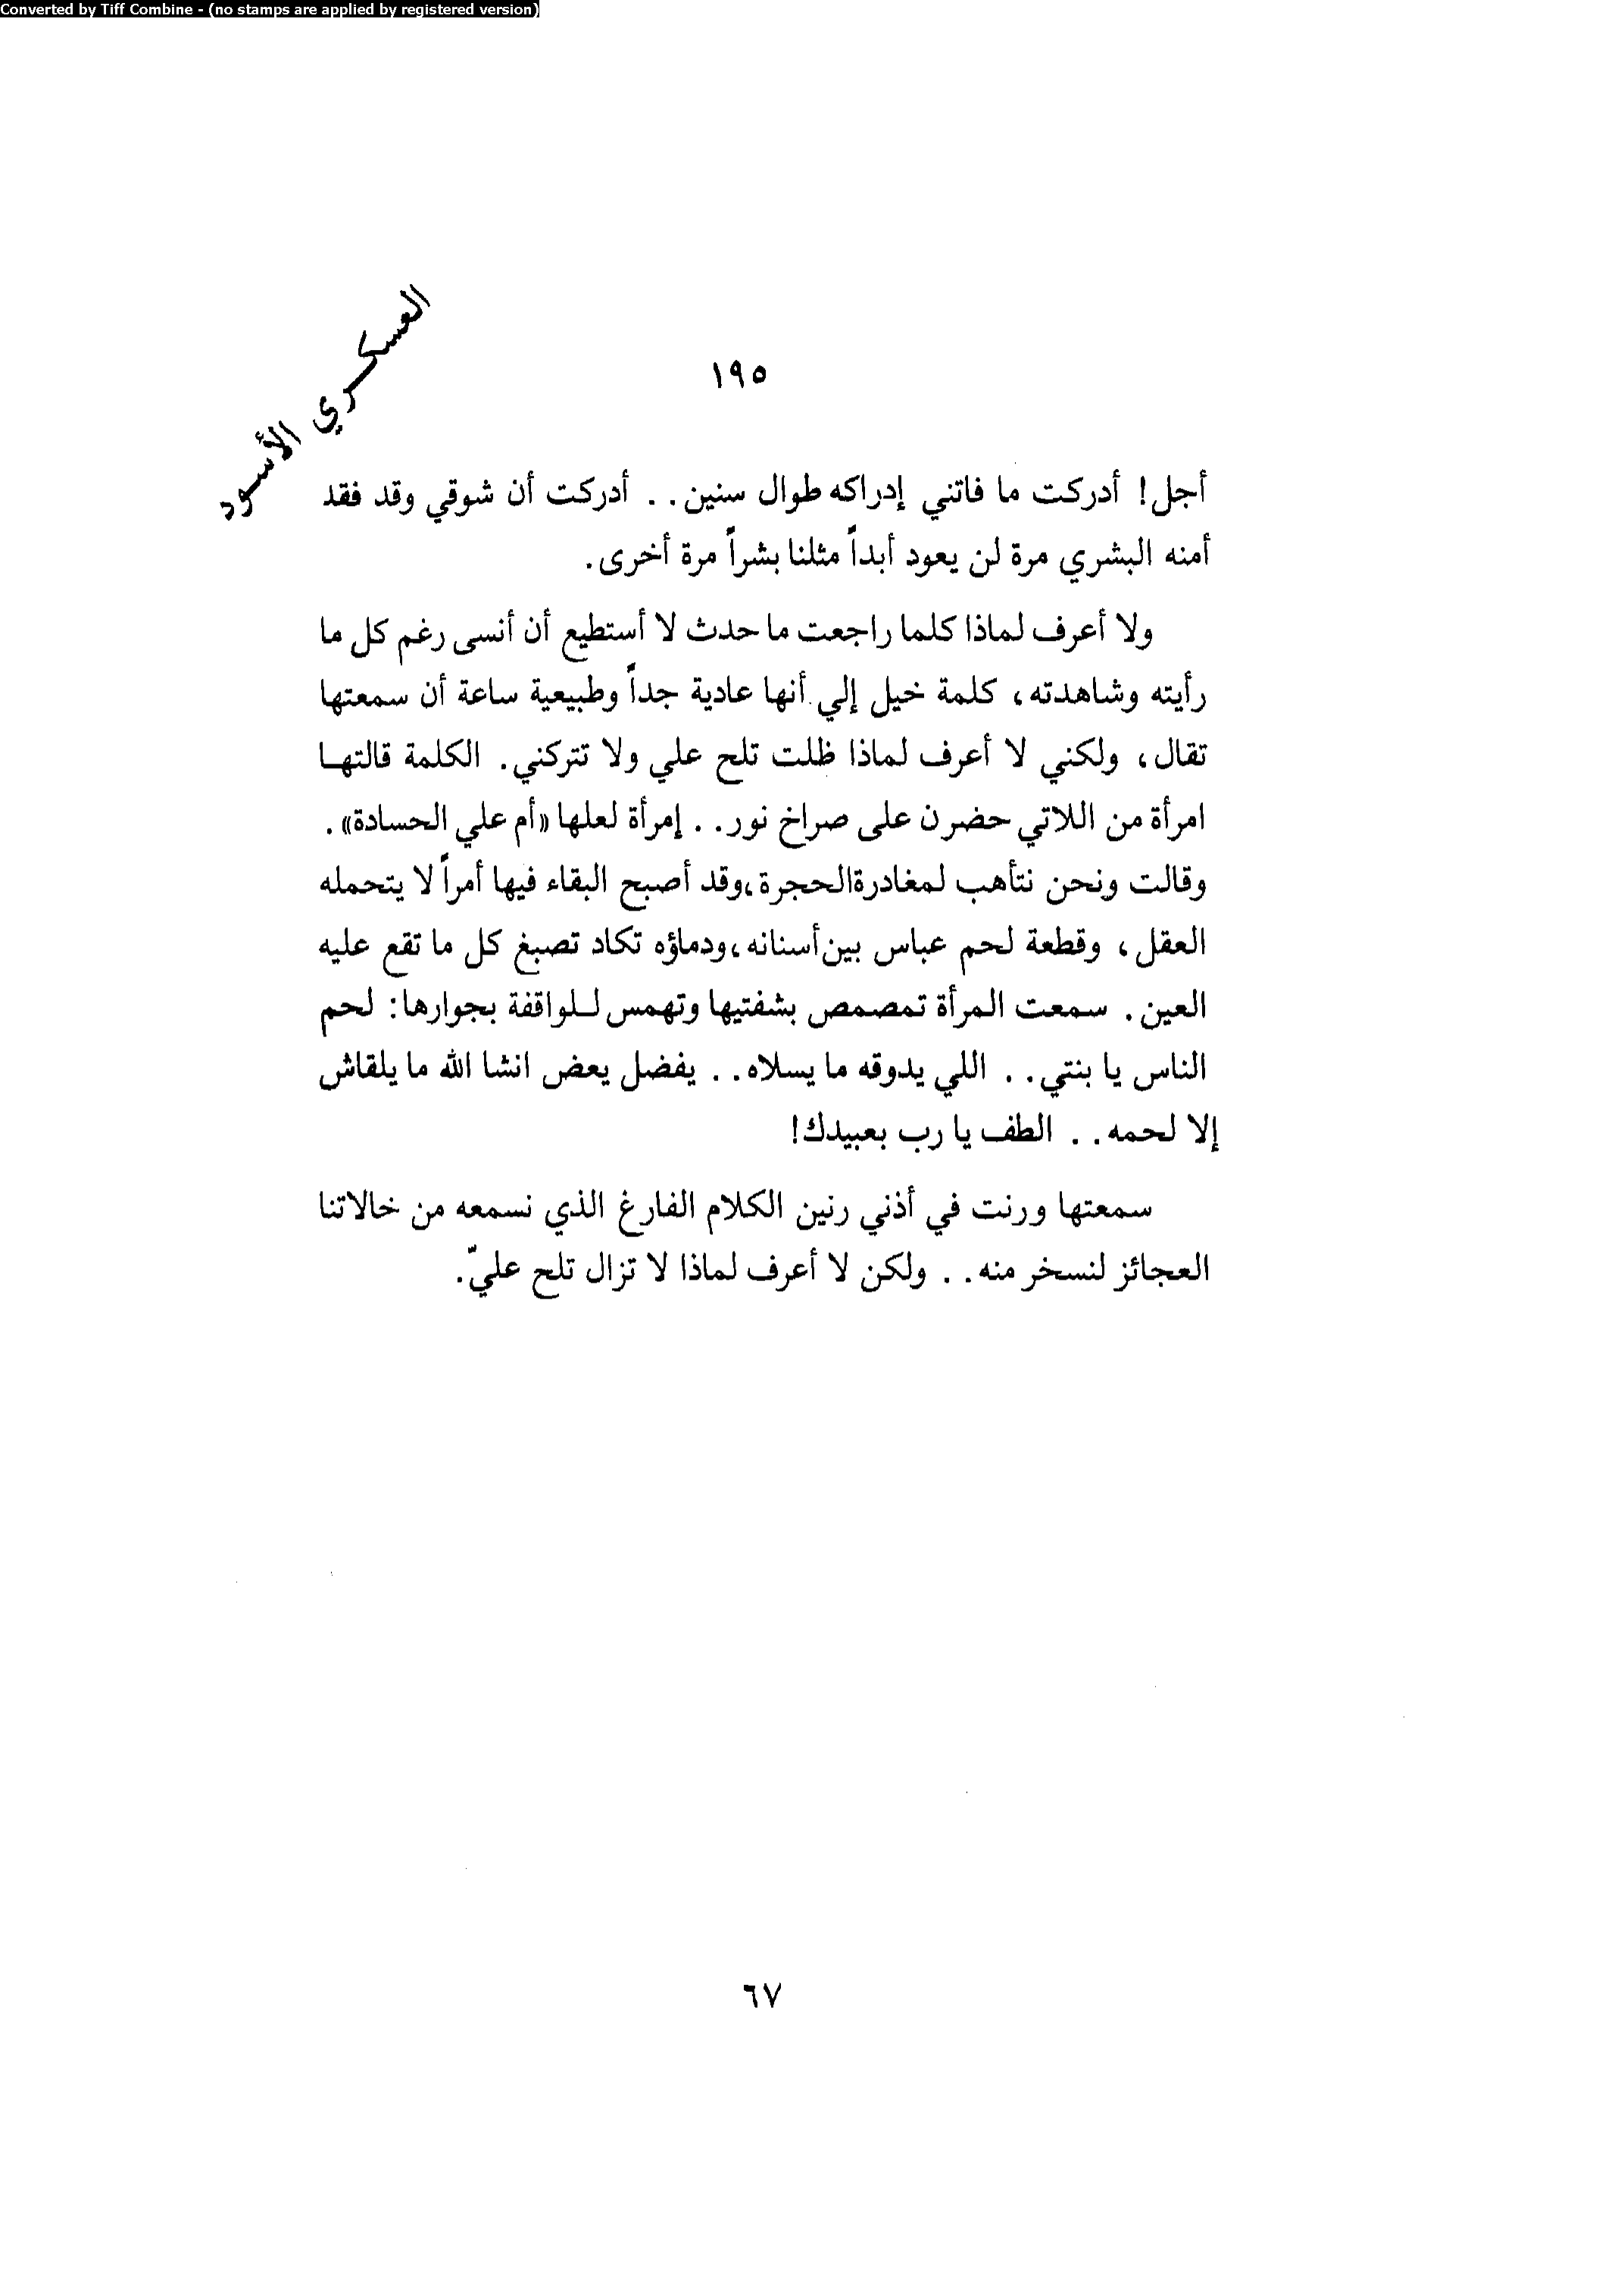 Converted by Tiff Combine - (no stamps are applied by registered version)
العسكري الأسود
١٩٥
أجل! أدركت ما فاتني إدراكه طوال سنين.. أدركت أن شوقي وقد فقد
أمنه البشري مرة لن يعود أبداً مثلنا بشراً مرة أخرى.
ولا أعرف لماذا كلما راجعت ما حدث لا أستطيع أن أنسى رغم كل ما
رأيته وشاهدته، كلمة خيل إلي أنها عادية جداً وطبيعية ساعة أن سمعتها
تقال، ولكني لا أعرف لماذا ظلت تلح علي ولا تتركني. الكلمة قالتهـا
امرأة من اللاتي حضرن على صراخ نور.. إمرأة لعلها «أم علي الحسادة».
وقالت ونحن نتأهب لمغادرة الحجرة، وقد أصبح البقاء فيها أمراً لا يتحمله
العقل، وقطعة لحم عباس بين أسنانه، ودماؤه تكاد تصبغ كل ما تقع عليه
العين. سمعت المرأة تمصمص بشفتيها وتهمس لـلواقفة بجوارها: لحم
الناس يا بنتي.. اللي يدوقه ما يسلاه.. يفضل يعض انشا الله ما يلقاش
إلا لحمه.. الطف يا رب بعبيدك!
سمعتها ورنت في أذني رنين الكلام الفارغ الذي نسمعه من خالاتنا
العجائز لنسخر منه.. ولكن لا أعرف لماذا لا تزال تلح عليّ.
٦٧